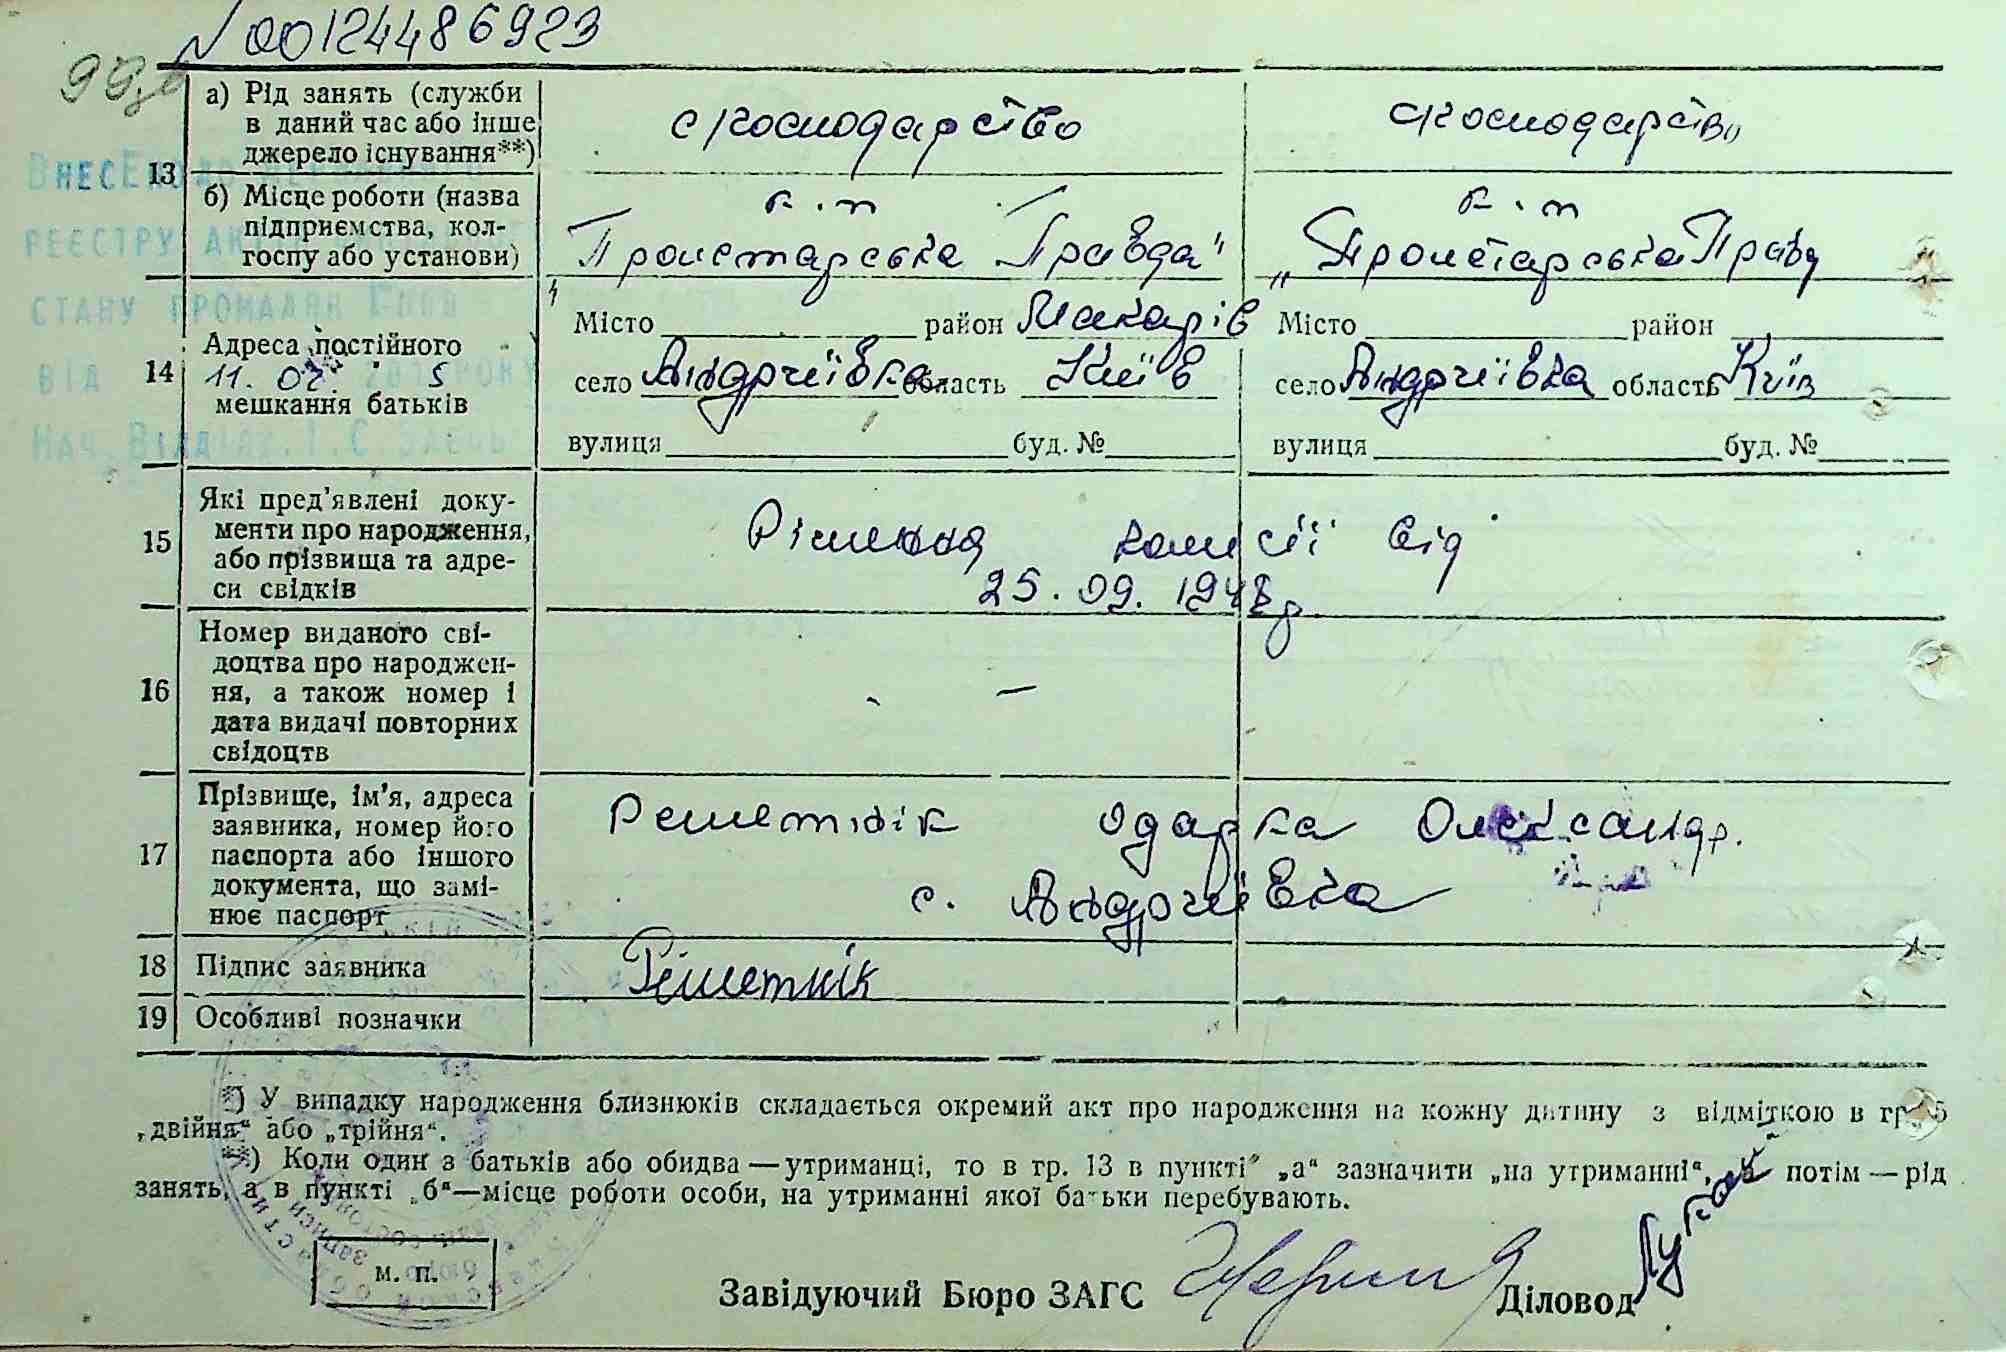 N 00124486923
99
а) Рід занять (служби в даний час або інше джерело існування**)
с господарство
с господарство
13
б) Місце роботи (назва підприємства, колгоспу або установи)
к-п
Пролетарська Правда"
к-п
„Пролетарська Правд
ВнесЕно до державного
реєстру актів
стану громадян Київ
від 11.02. 2015 року
Нач. Відділу
14
Адреса постійного мешкання батьків
Місто район Макарів
село Андріївка область Київ
вулиця буд. №
Місто район
село Андріївка область Київ
вулиця буд. №
15
Які пред'явлені документи про народження, або прізвища та адреси свідків
Рішення комісії від
25. 09. 1948 р
16
Номер виданого свідоцтва про народження, а також номер і дата видачі повторних свідоцтв
—
17
Прізвище, ім'я, адреса заявника, номер його паспорта або іншого документа, що замінює паспорт
Решетнік Одарка Олександр.
с. Андріївка
18
Підпис заявника
Рішетнік
19
Особливі позначки
*) У випадку народження близнюків складається окремий акт про народження на кожну дитину з відміткою в гр. 5
„двійня" або „трійня".
**) Коли один з батьків або обидва — утриманці, то в гр. 13 в пункті „а" зазначити „на утриманні", а потім — рід
занять, а в пункті „б" — місце роботи особи, на утриманні якої батьки перебувають.
м. п.
Завідуючий Бюро ЗАГС
Діловод